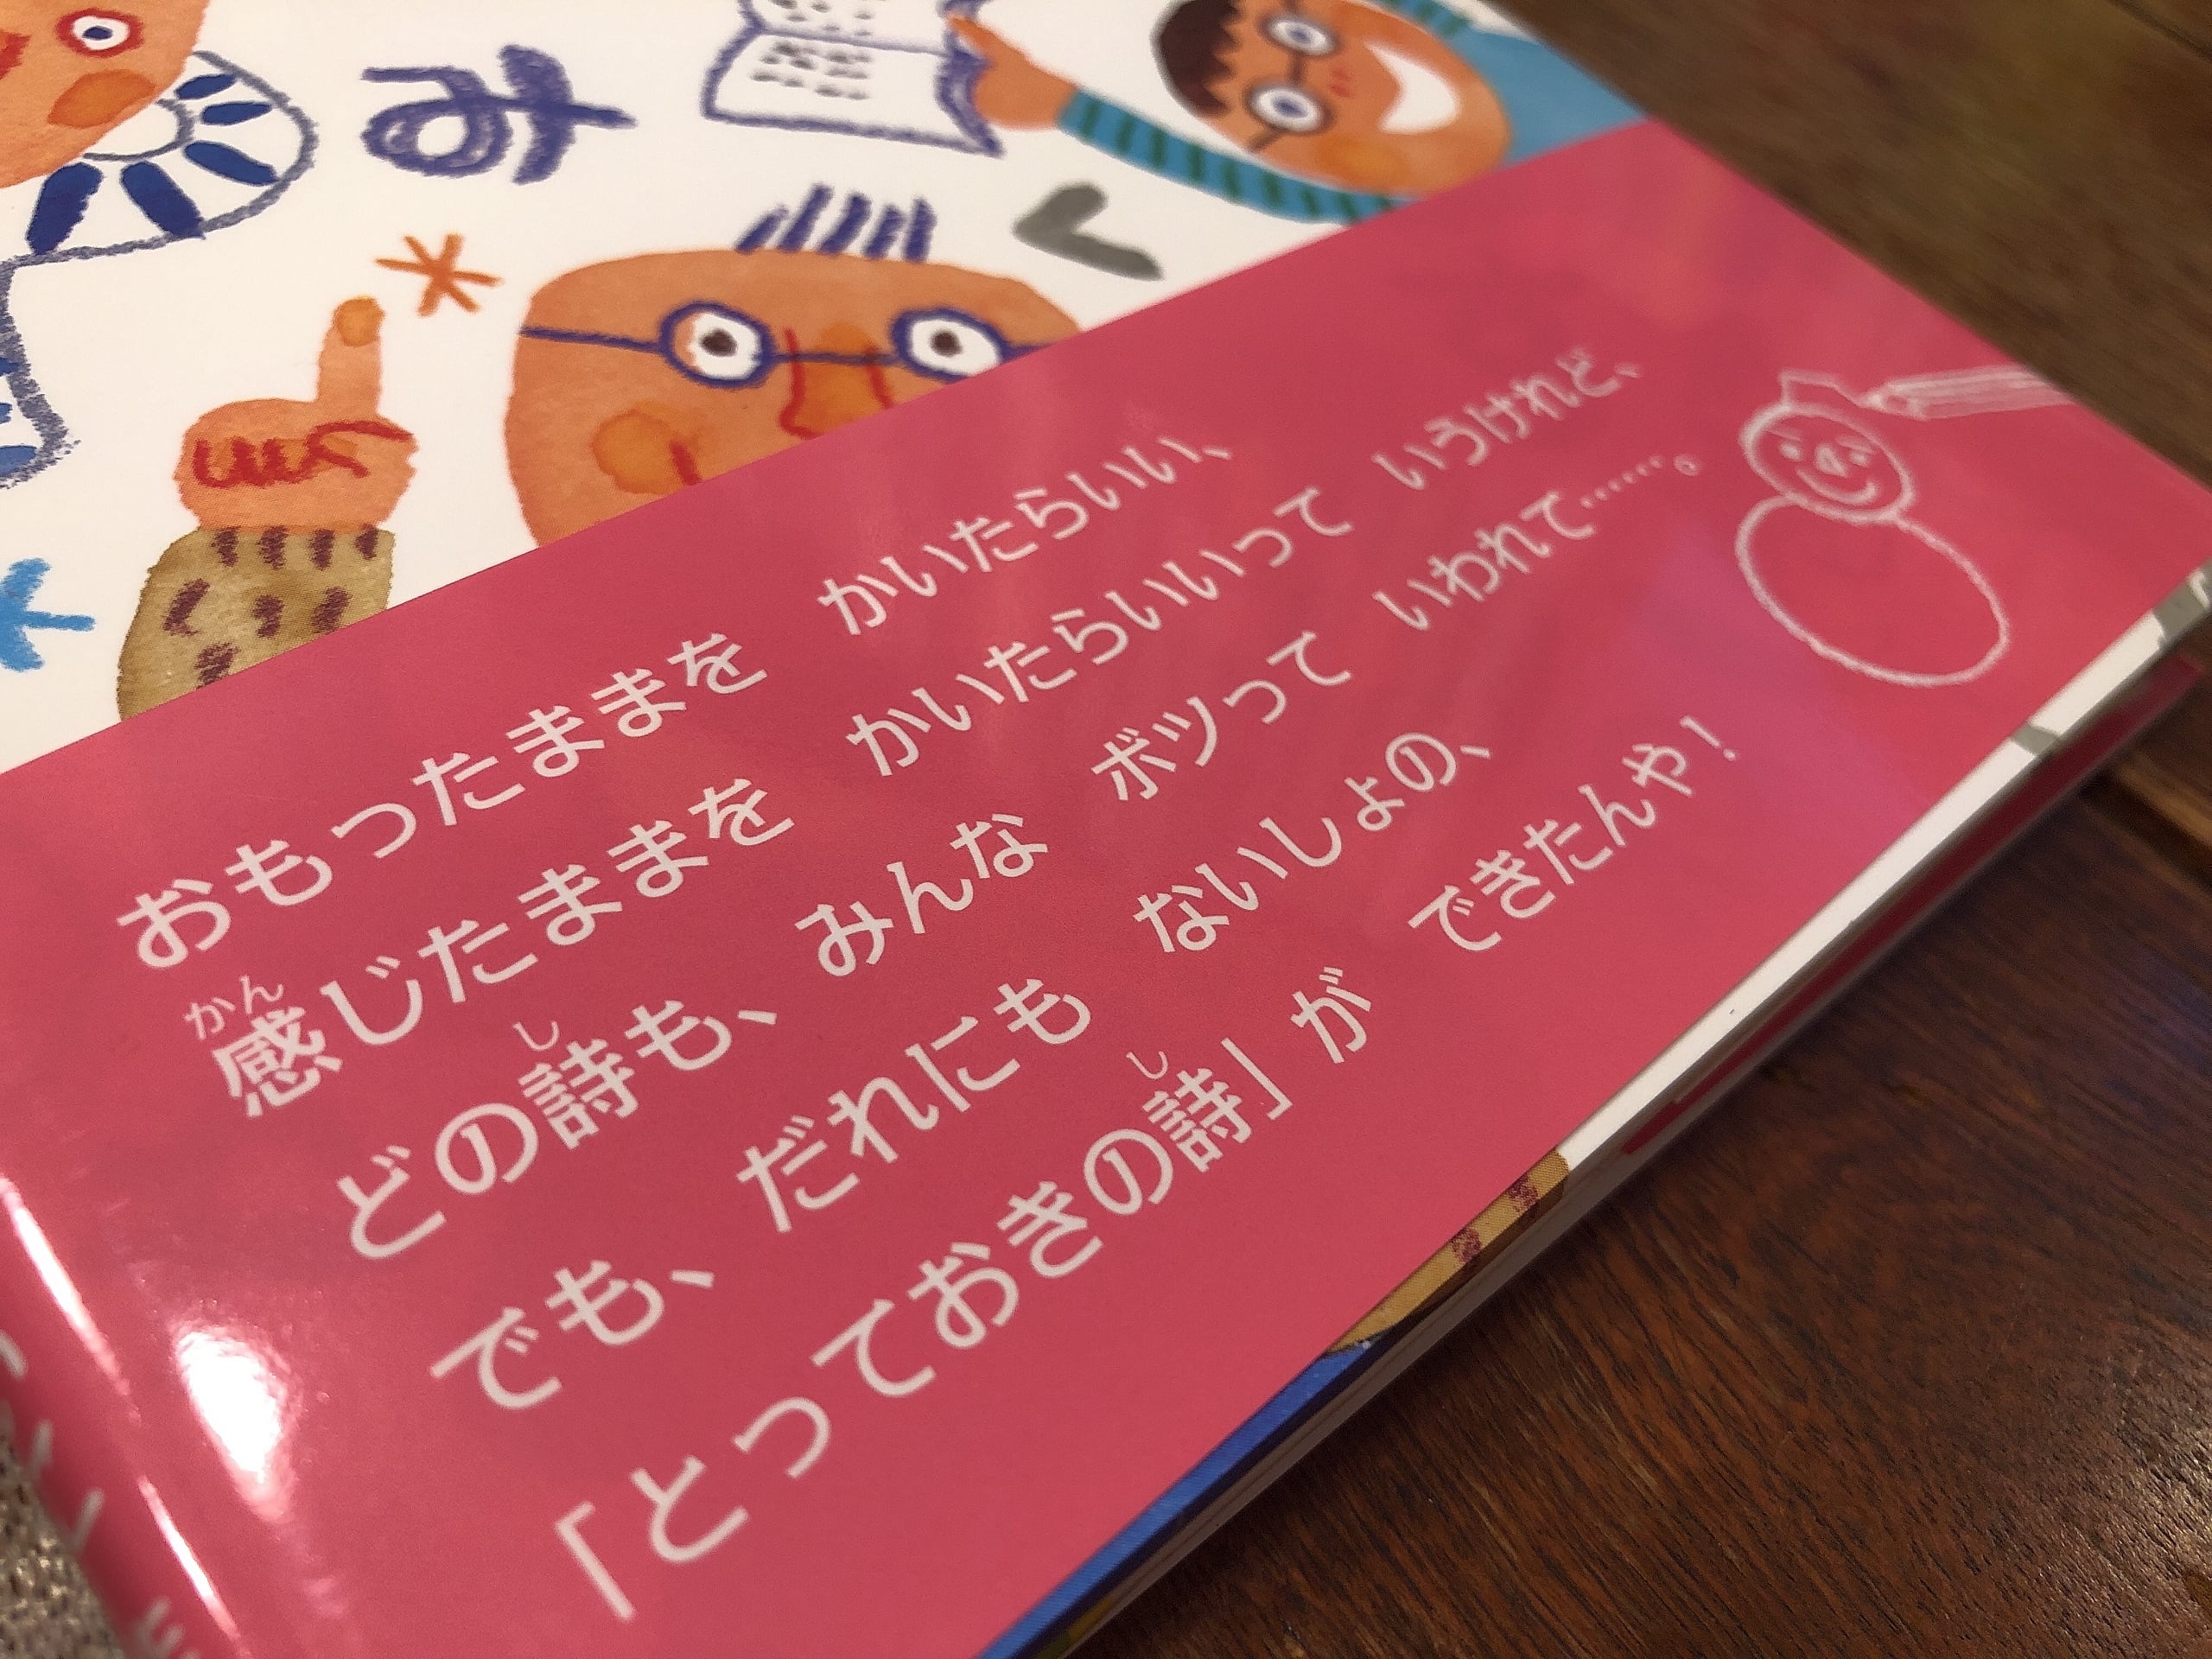 み
く
おもったままを　かいたらいい、
感じたままを　かいたらいいって　いうけれど、
かん
どの詩も、みんな　ボツって　いわれて……。
し
でも、だれにも　ないしょの、
「とっておきの詩」が　できたんや！
し